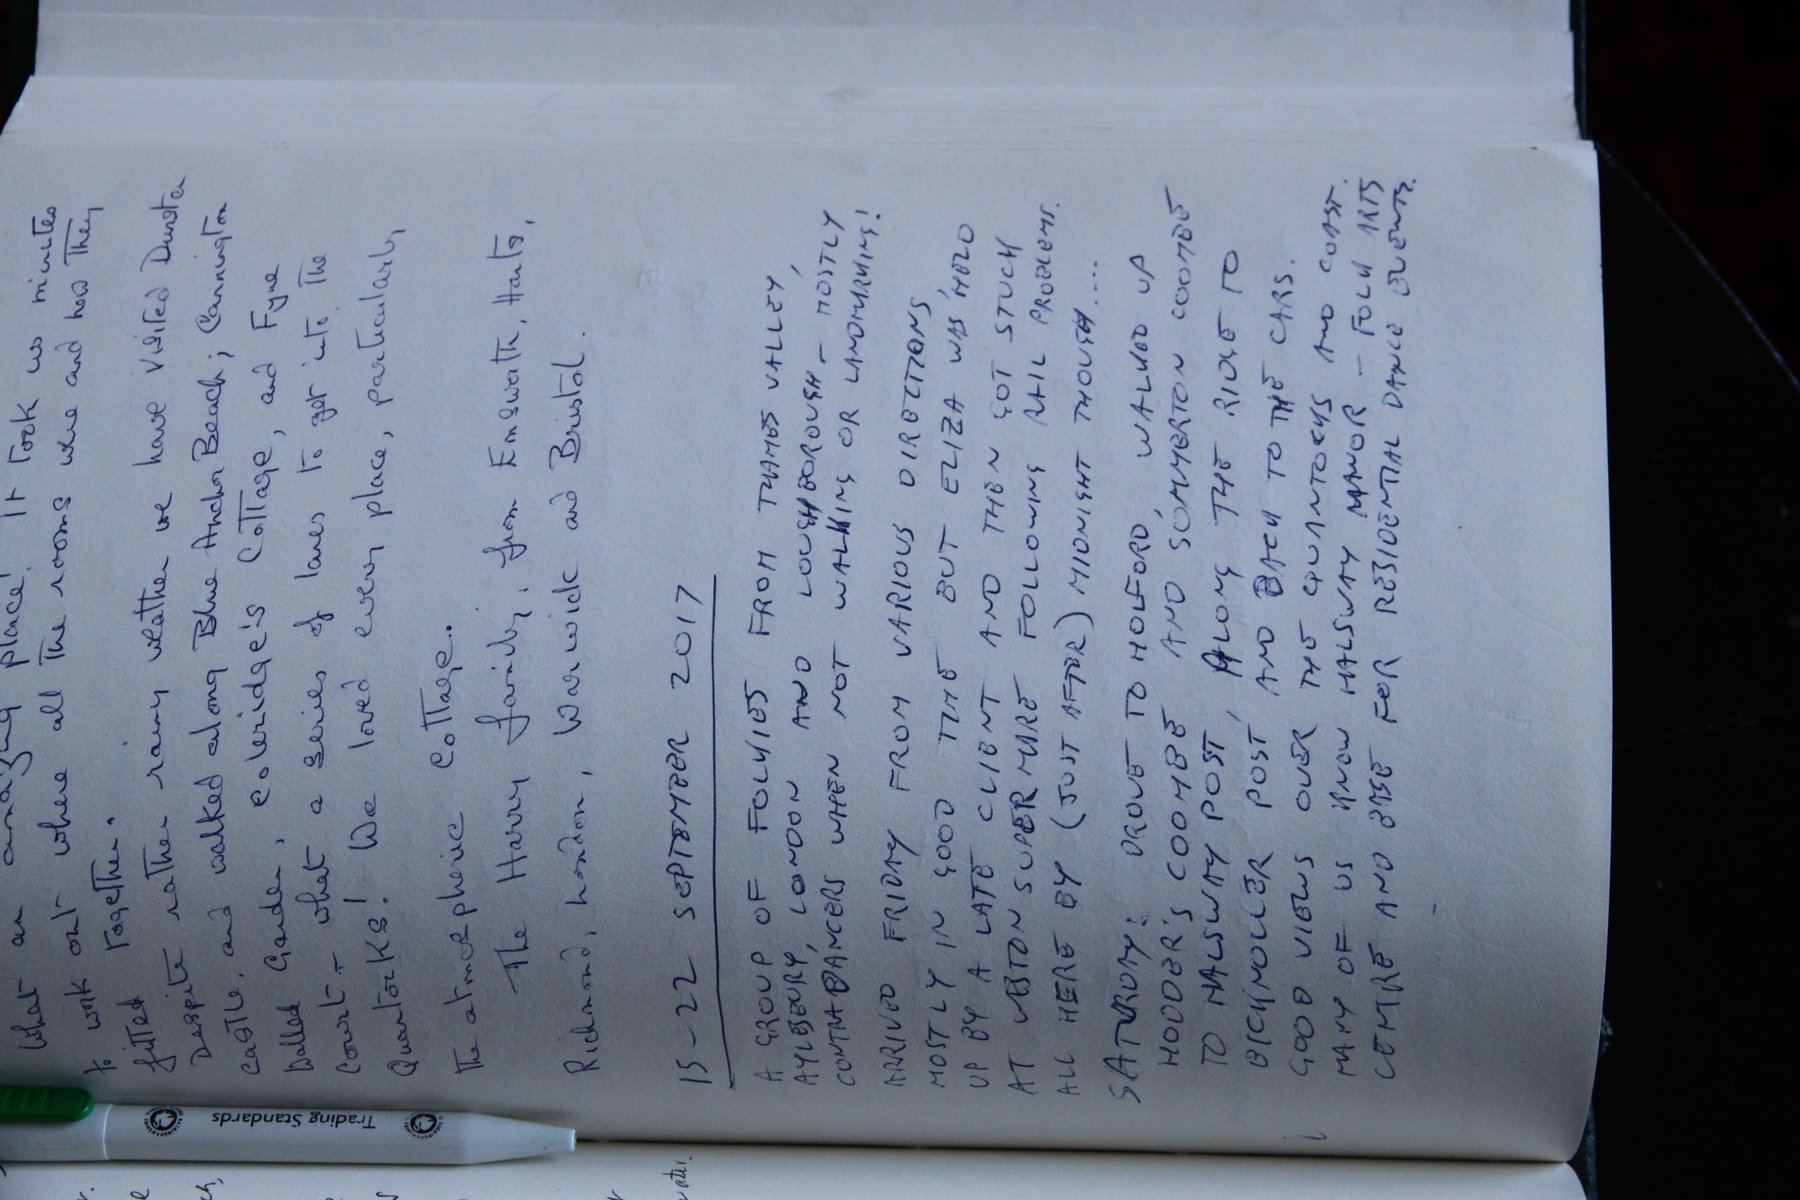 What an amazing place! It took us minutes
to work out where all the rooms were and how they
fitted together.
Despite rather rainy weather we have visited Dunster
Castle, and walked along Blue Anchor Beach; Cannington
Walled Garden, Coleridge's Cottage, and Fyne
Court - what a series of lanes to get into the
Quantocks! We loved every place, particularly
The atmospheric Cottage.
The Harry family, from Emsworth, Hants,
Richmond, London, Warwick and Bristol.
15-22 SEPTEMBER 2017
A GROUP OF FOLKIES FROM THAMES VALLEY,
AYLSBURY, LONDON AND LOUGHBOROUGH - MOSTLY
CONTRADANCERS WHEN NOT WALKING OR LANDMARKING!
ARRIVED FRIDAY FROM VARIOUS DIRECTIONS
MOSTLY IN GOOD TIME BUT ELIZA WAS HELD
UP BY A LATE CLIENT AND THEN GOT STUCK
AT WESTON SUPER MARE FOLLOWING RAIL PROBLEMS.
ALL HERE BY (JUST AFTER) MIDNIGHT THOUGH....
SATURDAY: DROVE TO HOLFORD, WALKED UP
HODDER'S COOMBE AND SOMMERTON COOMBE
TO HALSWAY POST, ALONG THE RIDGE TO
BICKNOLLER POST AND BACK TO THE CARS.
GOOD VIEWS OVER THE QUANTOCKS AND COAST.
MANY OF US KNOW HALSWAY MANOR - FOLK ARTS
CENTRE AND BASE FOR RESIDENTIAL DANCE EVENTS.
Trading Standards
water.